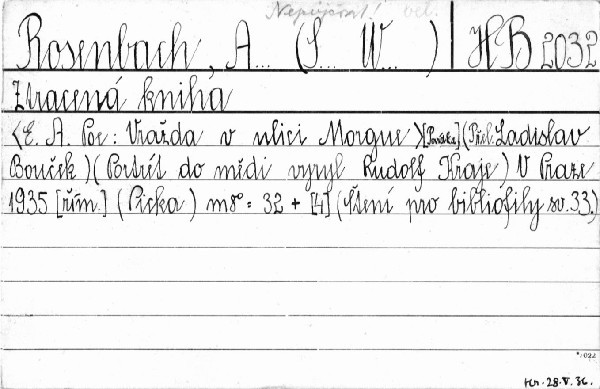 Nepůjčovat! vel.
Rosenbach, A... (S... W... ) HB 2032
Ztracená kniha
<E. A. Poe: Vražda v ulici Morgue>[Povídka](Přel. Ladislav
Bouček)(Portrét do mědi vyryl Rudolf Kraje) V Praze
1935 [řím.] (Picka) m8° = 32 + [4] (Čtení pro bibliofily sv. 33.)
Kr. 28.V.36.